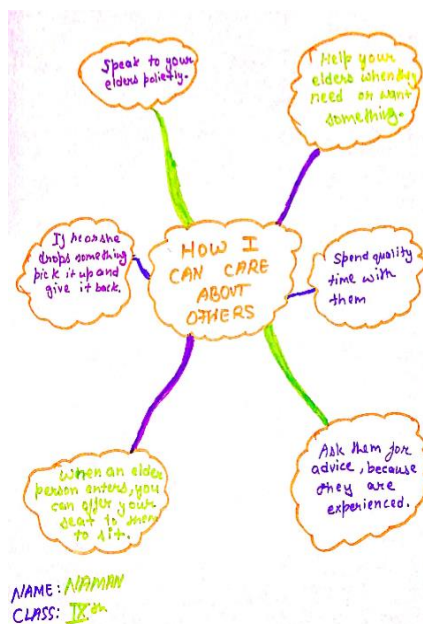 Speak to your
elders politely.
Help your
elders when they
need or want
something.
If he or she
drops something
pick it up and
give it back.
HOW I
CAN CARE
ABOUT
OTHERS
Spend quality
time with
them
When an elder
person enters, you
can offer your
seat to them
to sit.
Ask them for
advice, because
they are
experienced.
NAME: NAMAN
CLASS: IXth